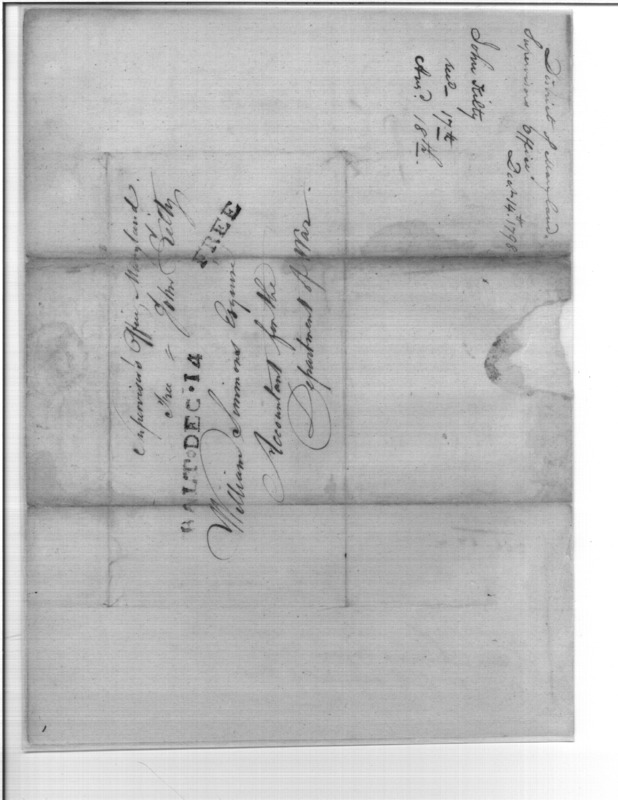 District of Maryland.
Supervisors Office
Decr. 14th. 1798
John Kilty
recd- 17th
Ansd. 18th.
Supervisor's Office, Maryland.
Free
John Kilty
FREE
BALT•DEC•14
William Simmons Esquire
Accountant for the
Department of War.